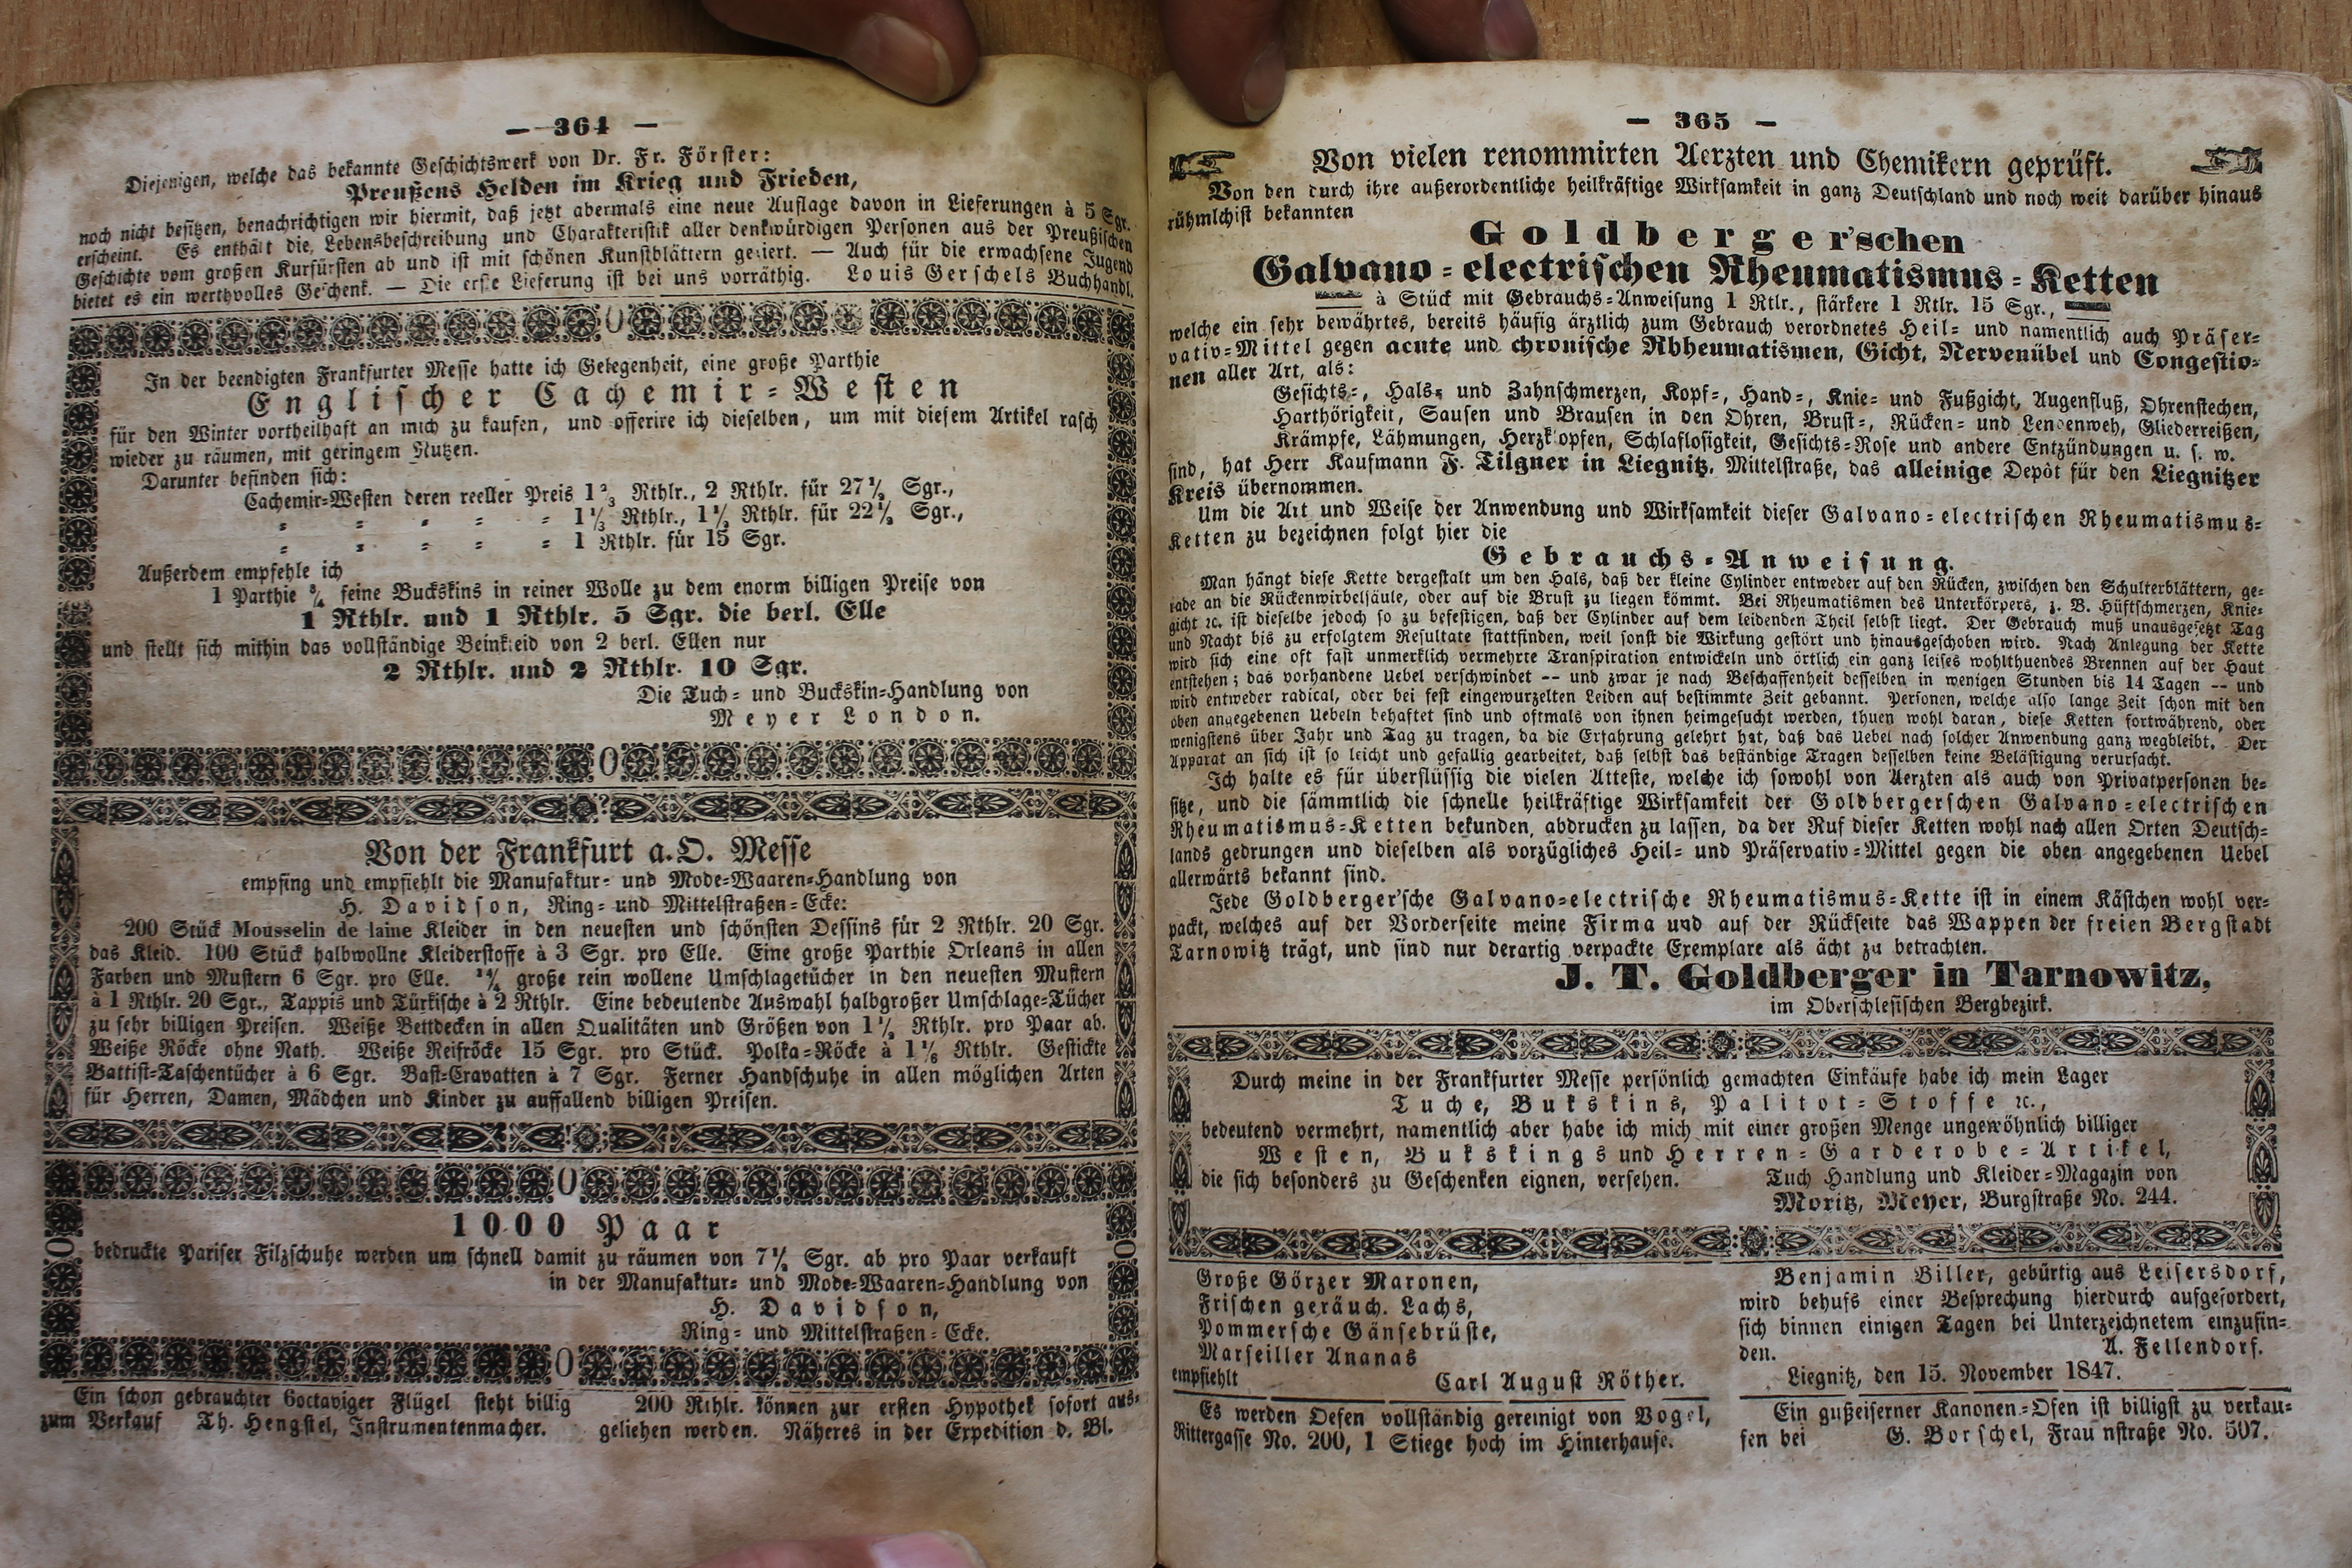 — 364 —
Diejenigen, welche das bekannte Geschichtswerk von Dr. Fr. Förster:
Preußens Helden im Krieg und Frieden,
noch nicht besitzen, benachrichtigen wir hiermit, daß jetzt abermals eine neue Auflage davon in Lieferungen à 5 Sgr.
erscheint. Es enthält die Lebensbeschreibung und Charakteristik aller denkwürdigen Personen aus der Preußischen
Geschichte vom großen Kurfürsten ab und ist mit schönen Kunstblättern geziert. — Auch für die erwachsene Jugend
bietet es ein werthvolles Geschenk. — Die erste Lieferung ist bei uns vorräthig. Louis Gerschels Buchhandl.
In der beendigten Frankfurter Messe hatte ich Gelegenheit, eine große Parthie
Englischer Cachemir-Westen
für den Winter vortheilhaft an mich zu kaufen, und offerire ich dieselben, um mit diesem Artikel rasch
wieder zu räumen, mit geringem Nutzen.
Darunter befinden sich:
Cachemir-Westen deren reeller Preis 1⅔ Rthlr., 2 Rthlr. für 27½ Sgr.,
= = = = = 1⅓ Rthlr., 1½ Rthlr. für 22½ Sgr.,
= = = = = 1 Rthlr. für 15 Sgr.
Außerdem empfehle ich
1 Parthie ¾ feine Buckskins in reiner Wolle zu dem enorm billigen Preise von
1 Rthlr. und 1 Rthlr. 5 Sgr. die berl. Elle
und stellt sich mithin das vollständige Beinkleid von 2 berl. Ellen nur
2 Rthlr. und 2 Rthlr. 10 Sgr.
Die Tuch- und Buckskin-Handlung von
Meyer London.
Von der Frankfurt a.O. Messe
empfing und empfiehlt die Manufaktur- und Mode-Waaren-Handlung von
H. Davidson, Ring- und Mittelstraßen-Ecke:
200 Stück Mousselin de laine Kleider in den neuesten und schönsten Dessins für 2 Rthlr. 20 Sgr.
das Kleid. 100 Stück halbwollne Kleiderstoffe à 3 Sgr. pro Elle. Eine große Parthie Orleans in allen
Farben und Mustern 6 Sgr. pro Elle. große rein wollene Umschlagetücher in den neuesten Mustern
à 1 Rthlr. 20 Sgr., Tappis und Türkische à 2 Rthlr. Eine bedeutende Auswahl halbgroßer Umschlage-Tücher
zu sehr billigen Preisen. Weiße Bettdecken in allen Qualitäten und Größen von Rthlr. pro Paar ab.
Weiße Röcke ohne Nath. Weiße Reifröcke 15 Sgr. pro Stück. Polka-Röcke à 1⅙ Rthlr. Gestickte
Battist-Taschentücher à 6 Sgr. Bast-Cravatten à 7 Sgr. Ferner Handschuhe in allen möglichen Arten
für Herren, Damen, Mädchen und Kinder zu auffallend billigen Preisen.
1000 Paar
bedruckte Pariser Filzschuhe werden um schnell damit zu räumen von 7½ Sgr. ab pro Paar verkauft
in der Manufaktur- und Mode-Waaren-Handlung von
H. Davidson,
Ring- und Mittelstraßen-Ecke.
Ein schon gebrauchter 6octaviger Flügel steht billig
zum Verkauf Th. Hengstel, Instrumentenmacher.
200 Rthlr. können zur ersten Hypothek sofort aus-
geliehen werden. Näheres in der Expedition d. Bl.
— 365 —
Von vielen renommirten Aerzten und Chemikern geprüft.
Von den durch ihre außerordentliche heilkräftige Wirksamkeit in ganz Deutschland und noch weit darüber hinaus
rühmlchist bekannten
Goldberger'schen
Galvano-electrischen Rheumatismus-Ketten
à Stück mit Gebrauchs-Anweisung 1 Rtlr., stärkere 1 Rtlr. 15 Sgr.,
welche ein sehr bewährtes, bereits häufig ärztlich zum Gebrauch verordnetes Heil- und namentlich auch Präser-
vativ-Mittel gegen acute und chronische Rbheumatismen, Gicht, Nervenübel und Congestio-
nen aller Art, als:
Gesichts-, Hals- und Zahnschmerzen, Kopf-, Hand-, Knie- und Fußgicht, Augenfluß, Ohrenstechen,
Harthörigkeit, Sausen und Brausen in den Ohren, Brust-, Rücken- und Lendenweh, Gliederreißen,
Krämpfe, Lähmungen, Herzklopfen, Schlaflosigkeit, Gesichts-Rose und andere Entzündungen u. s. w.
sind, hat Herr Kaufmann F. Tilgner in Liegnitz, Mittelstraße, das alleinige Depôt für den Liegnitzer
Kreis übernommen.
Um die Art und Weise der Anwendung und Wirksamkeit dieser Galvano-electrischen Rheumatismus-
Ketten zu bezeichnen folgt hier die
Gebrauchs-Anweisung.
Man hängt diese Kette dergestalt um den Hals, daß der kleine Cylinder entweder auf den Rücken, zwischen den Schulterblättern, ge-
rade an die Rückenwirbelsäule, oder auf die Brust zu liegen kömmt. Bei Rheumatismen des Unterkörpers, z. B. Hüftschmerzen, Knie-
gicht ꝛc. ist dieselbe jedoch so zu befestigen, daß der Cylinder auf dem leidenden Theil selbst liegt. Der Gebrauch muß unausgesetzt Tag
und Nacht bis zu erfolgtem Resultate stattfinden, weil sonst die Wirkung gestört und hinausgeschoben wird. Nach Anlegung der Kette
wird sich eine oft fast unmerklich vermehrte Transpiration entwickeln und örtlich ein ganz leises wohlthuendes Brennen auf der Haut
entstehen; das vorhandene Uebel verschwindet -- und zwar je nach Beschaffenheit desselben in wenigen Stunden bis 14 Tagen -- und
wird entweder radical, oder bei fest eingewurzelten Leiden auf bestimmte Zeit gebannt. Personen, welche also lange Zeit schon mit den
oben angegebenen Uebeln behaftet sind und oftmals von ihnen heimgesucht werden, thuen wohl daran, diese Ketten fortwährend, oder
wenigstens über Jahr und Tag zu tragen, da die Erfahrung gelehrt hat, daß das Uebel nach solcher Anwendung ganz wegbleibt. Der
Apparat an sich ist so leicht und gefällig gearbeitet, daß selbst das beständige Tragen desselben keine Belästigung verursacht.
Ich halte es für überflüssig die vielen Atteste, welche ich sowohl von Aerzten als auch von Privatpersonen be-
sitze, und die sämmtlich die schnelle heilkräftige Wirksamkeit der Goldbergerschen Galvano-electrischen
Rheumatismus-Ketten bekunden, abdrucken zu lassen, da der Ruf dieser Ketten wohl nach allen Orten Deutsch-
lands gedrungen und dieselben als vorzügliches Heil- und Präservativ-Mittel gegen die oben angegebenen Uebel
allerwärts bekannt sind.
Jede Goldberger'sche Galvano-electrische Rheumatismus-Kette ist in einem Kästchen wohl ver-
packt, welches auf der Vorderseite meine Firma und auf der Rückseite das Wappen der freien Bergstadt
Tarnowitz trägt, und sind nur derartig verpackte Exemplare als ächt zu betrachten.
J. T. Goldberger in Tarnowitz,
im Oberschlesischen Bergbezirk.
Durch meine in der Frankfurter Messe persönlich gemachten Einkäufe habe ich mein Lager
Tuche, Bukskins, Palitot-Stoffe ꝛc.,
bedeutend vermehrt, namentlich aber habe ich mich mit einer großen Menge ungewöhnlich billiger
Westen, Bukskings und Herren-Garderobe-Artikel,
die sich besonders zu Geschenken eignen, versehen. Tuch Handlung und Kleider-Magazin von
Moritz, Meyer, Burgstraße No. 244.
Große Görzer Maronen,
Frischen geräuch. Lachs,
Pommersche Gänsebrüste,
Marseiller Ananas
empfiehlt Carl August Röther.
Es werden Oefen vollständig gereinigt von Vogel,
Rittergasse No. 200, 1 Stiege hoch im Hinterhause.
Benjamin Biller, gebürtig aus Leisersdorf,
wird behufs einer Besprechung hierdurch aufgefordert,
sich binnen einigen Tagen bei Unterzeichnetem einzufin-
den. A. Fellendorf.
Liegnitz, den 15. November 1847.
Ein gußeiserner Kanonen-Ofen ist billigst zu verkau-
fen bei G. Borschel, Frau nstraße No. 507.